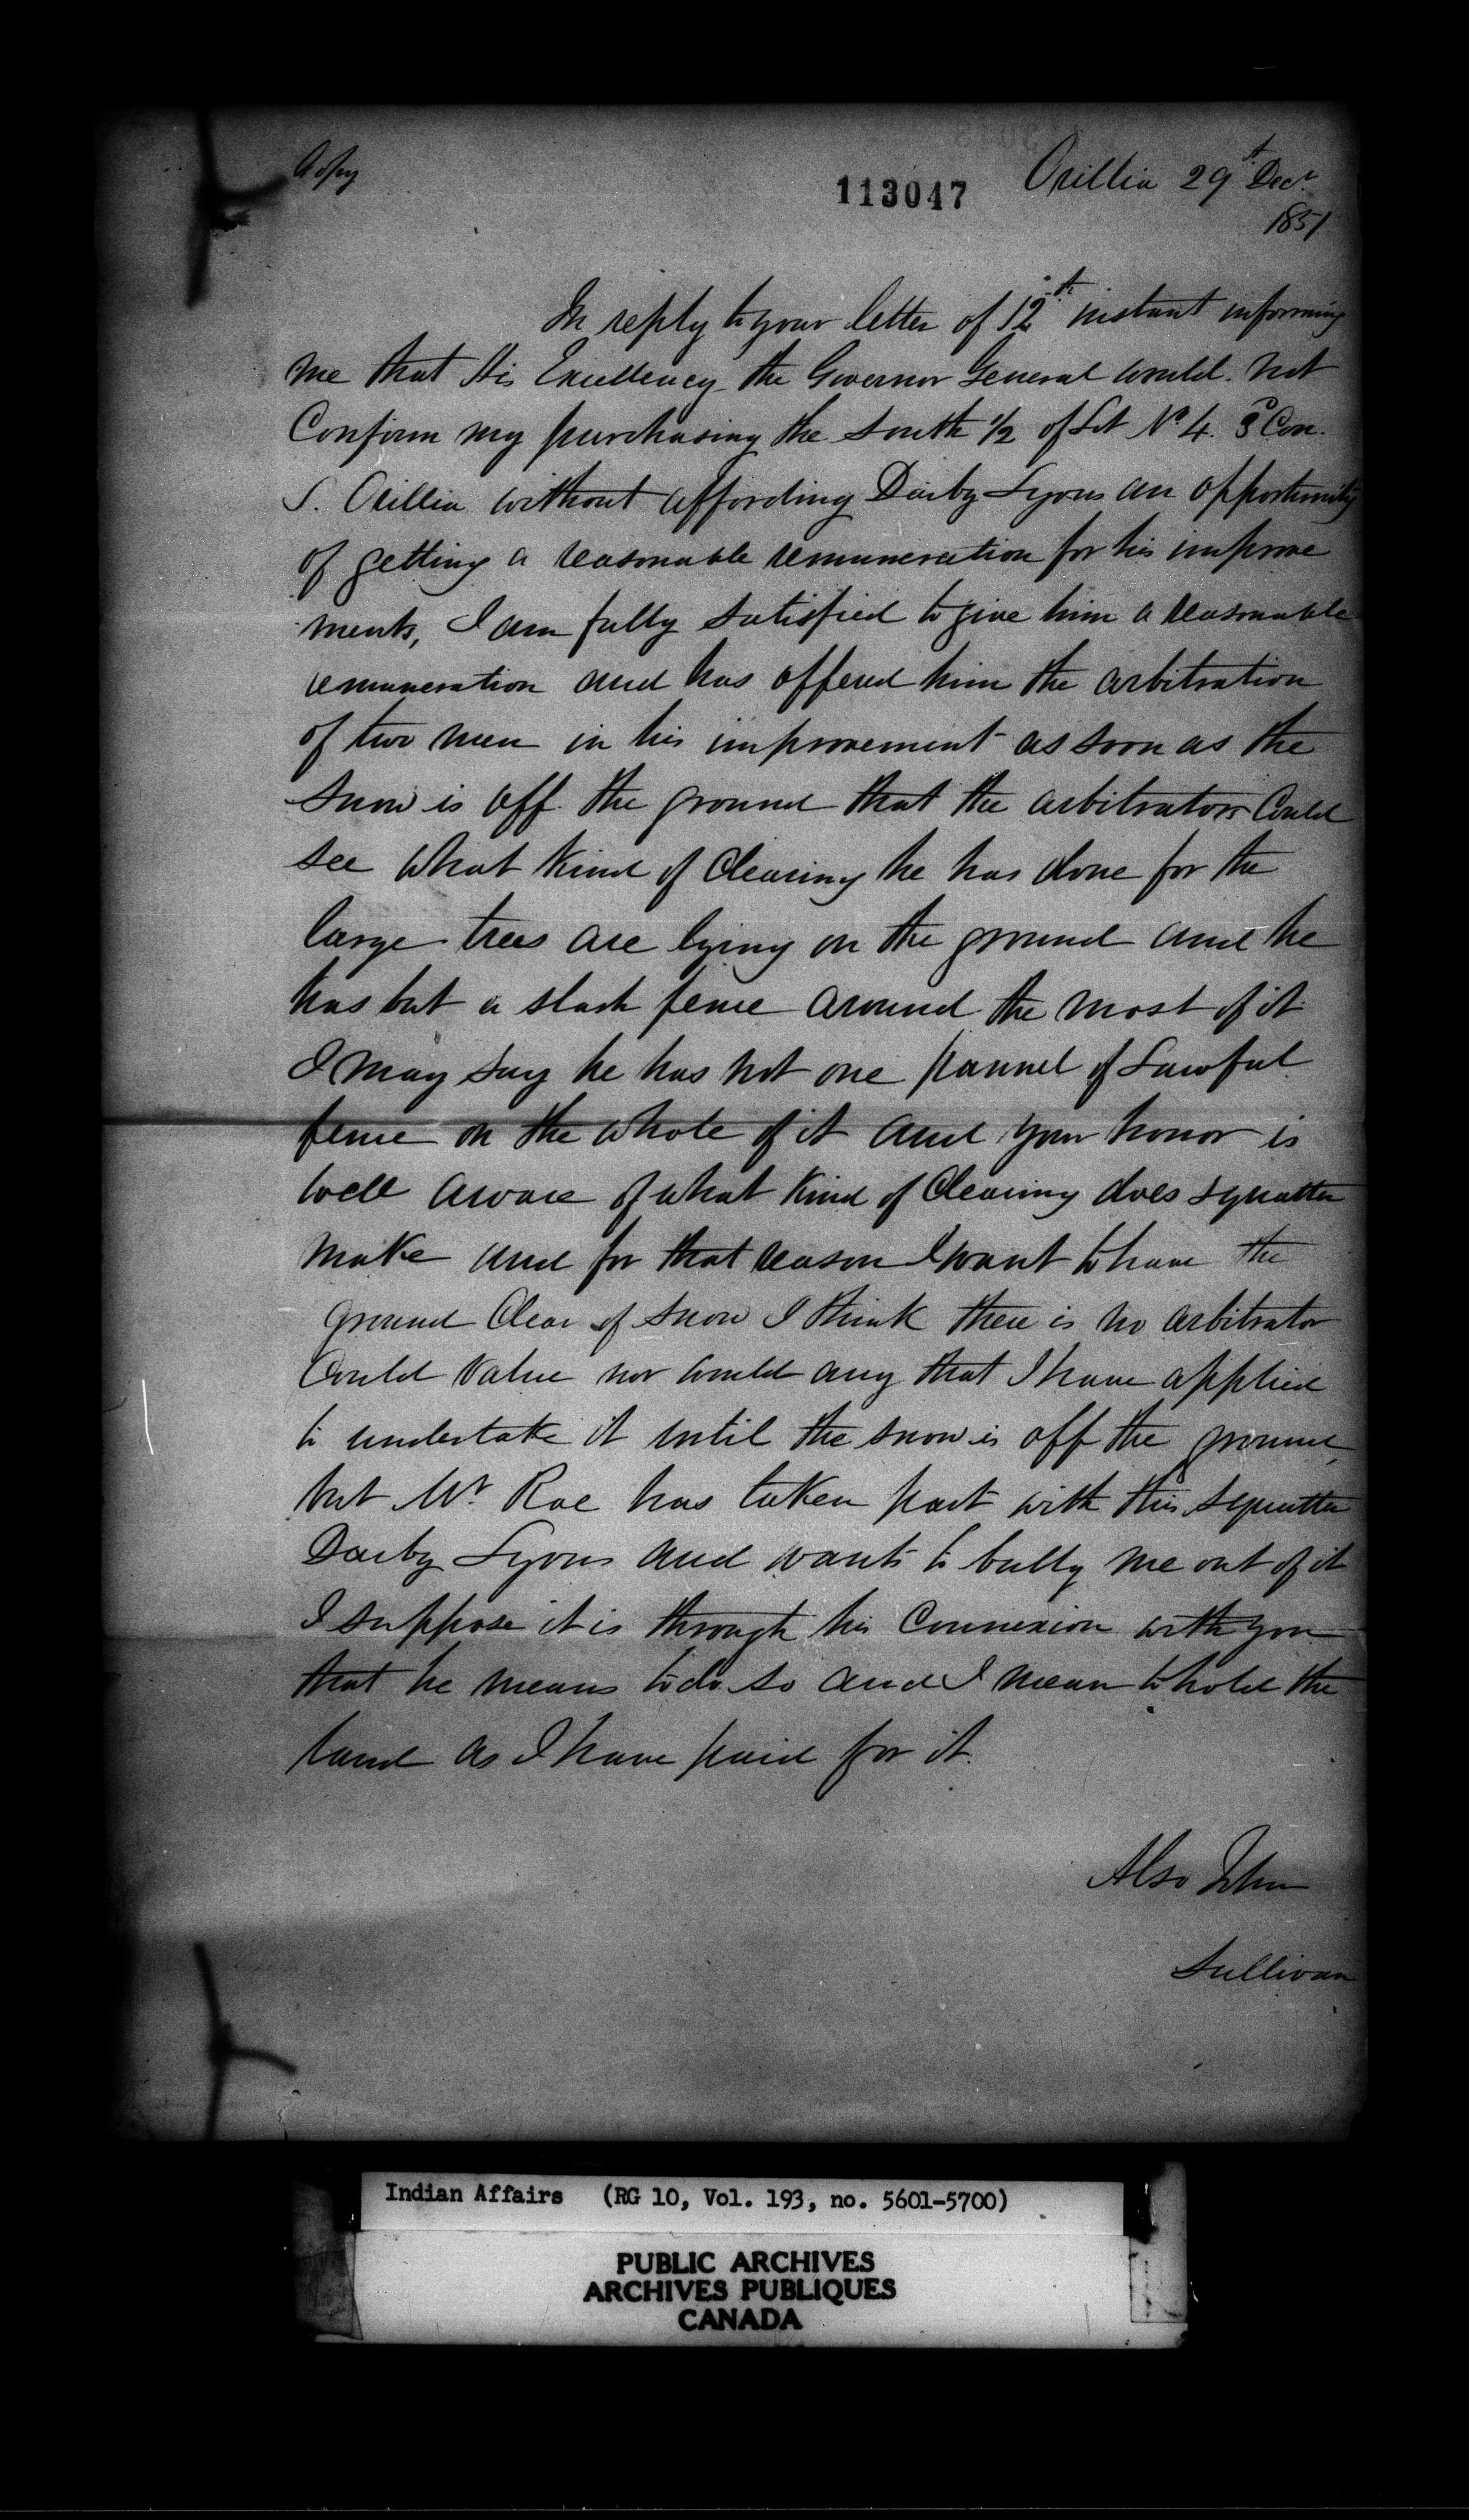 Copy
113047
Orillia 29th Decr.
1851
In reply to your letter of 12th instant informing
me that His Excellency the Governor General would not
Confirm my purchasing the South 1/2 of Lot No 4. 3d Con.
S. Orillia without affording Darby Lyons an opportunity
of getting a reasonable remuneration for his improve
ments, I am fully satisfied to give him a reasonable
remuneration and has offered him the arbitration
of two men in his improvement as soon as the
Snow is off the ground that the arbitrators Could
see what Kind of Clearing he has done for the
large trees are lying on the ground and he
has but a slash fence around the most of it
I may say he has not one pannel of Lawful
fence on the whole of it and your honor is
well aware of what Kind of Clearing does squatter
make and for that reason I want to have the
ground Clear of snow I think there is no arbitrator
Could value nor would any that I have applied
to undertake it until the snow is off the ground,
but Mr. Rae has taken part with this squatter
Darby Lyons and wants to bully me out of it
I suppose it is through his Connexion with you
that he means to do so and I mean to hold the
land as I have paid for it.
Also John
Sullivan
Indian Affairs (RG 10, Vol. 193, no. 5601-5700)
PUBLIC ARCHIVES
ARCHIVES PUBLIQUES
CANADA